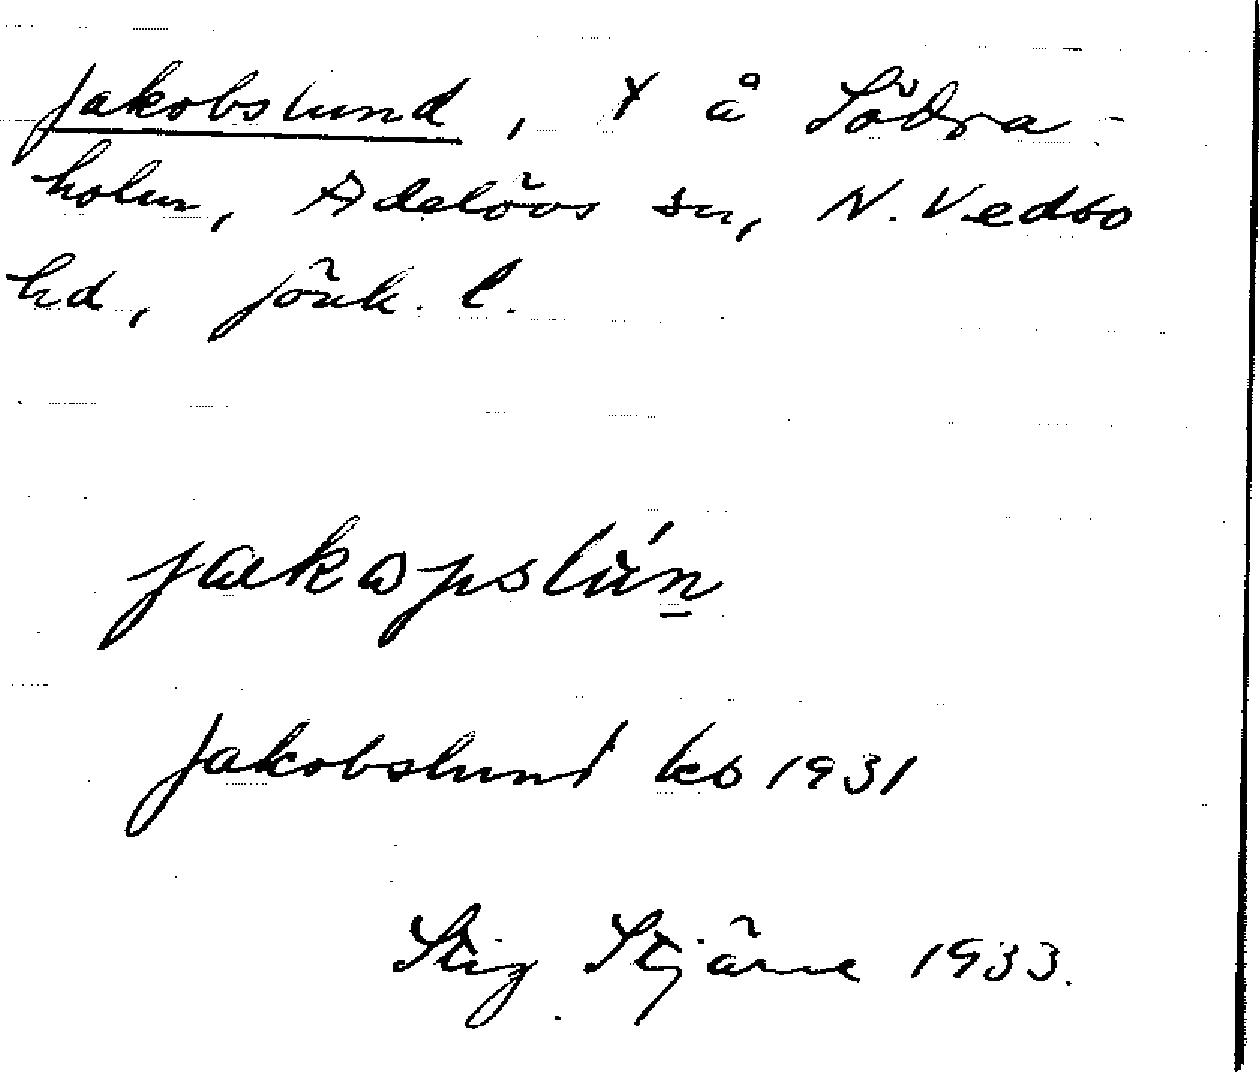 Jakobslund, x å Södra-
holm, Adelövs sn, N. Vedbo
hd, Jönk. l.
jakopslún
Jakobslund kb 1931
Stig Stjärne 1933.